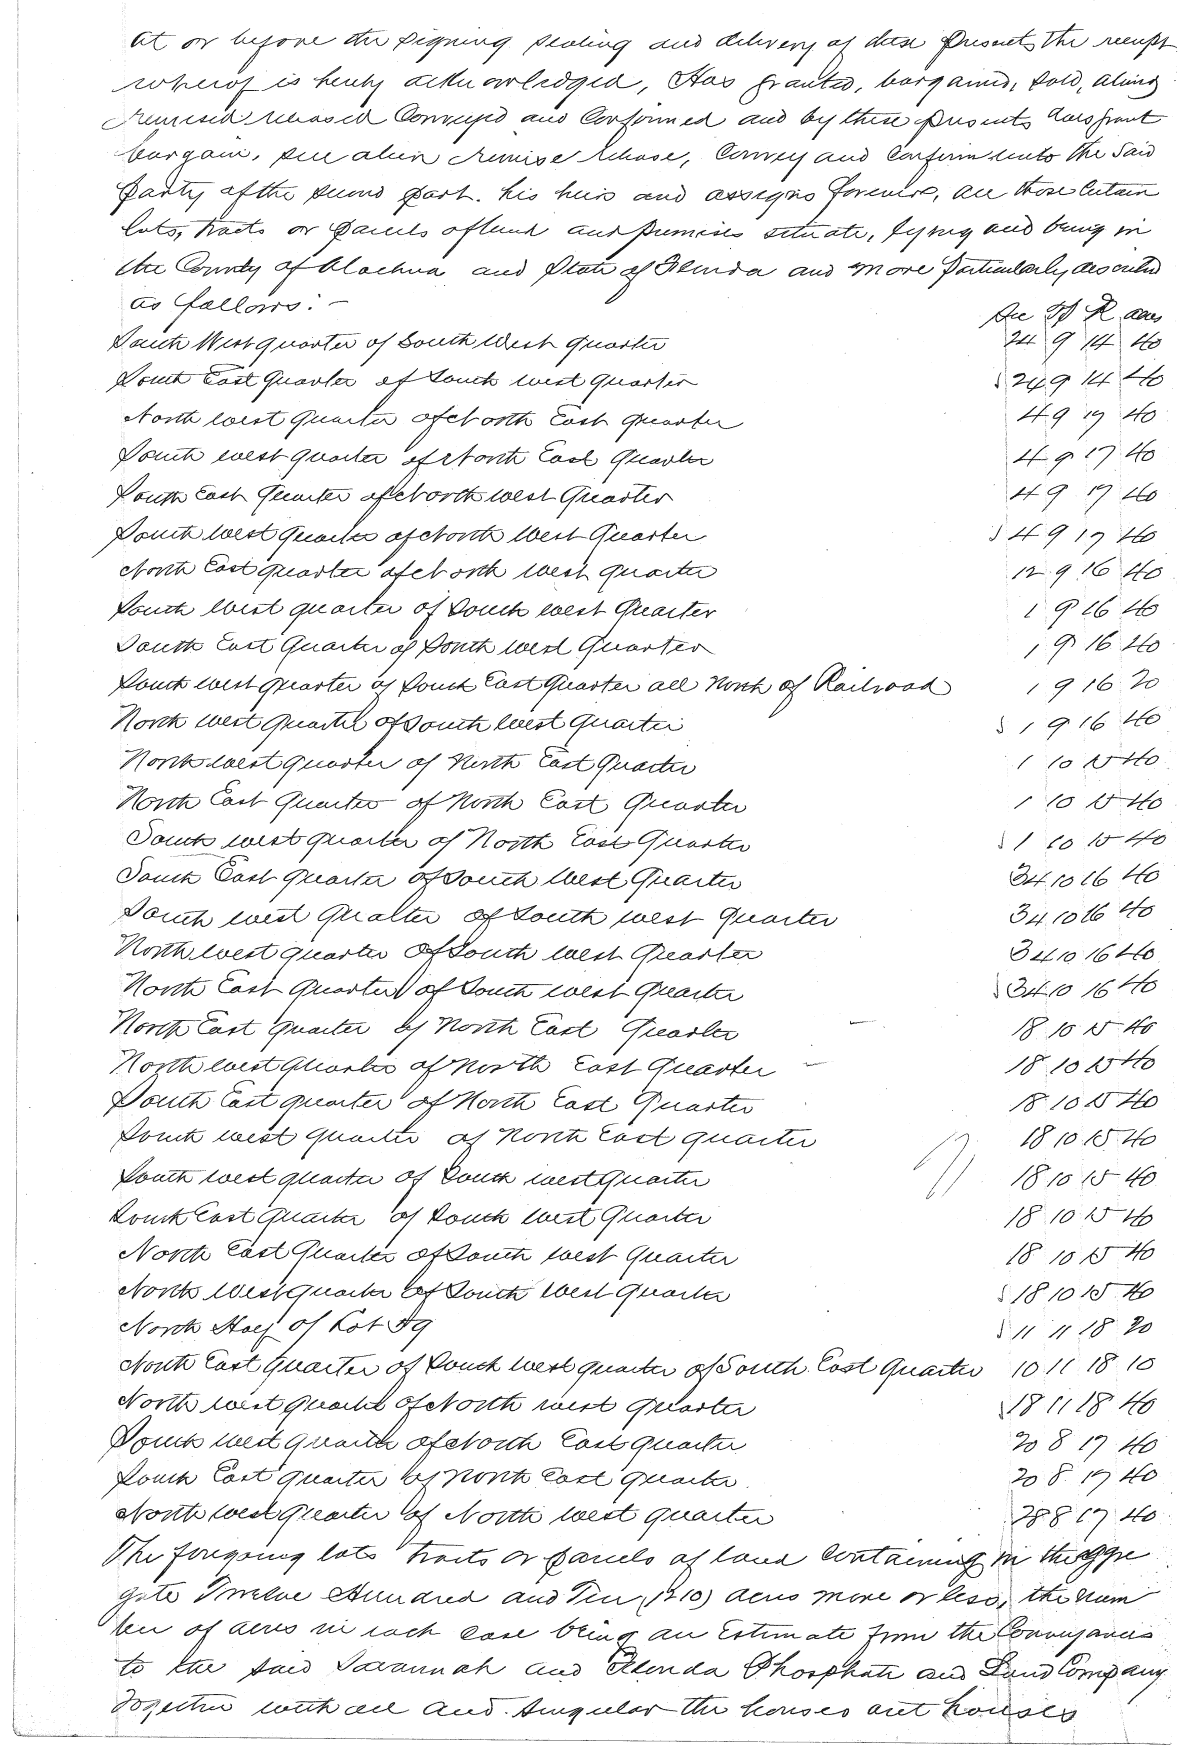 at or before the signing sealing and delivery of these presents, the receipt
whereof is hereby acknowledged, Has granted, bargained, sold, aliend
remised released Conveyed and Confirmed and by these presents does grant
bargain, sell alien remise release, Convey and Confirm unto the said
party of the second part. his heirs and assigns forever, all those Certain
lots, tracts or parcels of land and premises situate, lying and being in
the County of Alachua and State of Florida and more particularly described
as follows:-
Sec T R acres
South West quarter of South West quarter 24 9 14 40
South East Quarter of South west quarter 24 9 14 40
North west quarter of North East quarter 4 9 17 40
South west quarter of North East Quarter 4 9 17 40
South East Quarter of North west Quarter 4 9 17 40
South west Quarter of North West Quarter 4 9 17 40
North East quarter of North west quarter 12 9 16 40
South West quarter of South west Quarter 1 9 16 40
South East Quarter of South west Quarter 1 9 16 40
South west quarter of South East Quarter all North of Railroad 1 9 16 20
North west Quarter of South west Quarter 1 9 16 40
North west quarter of North East Quarter 1 10 15 40
North East Quarter of North East Quarter 1 10 15 40
South west quarter of North East Quarter 1 10 15 40
South East Quarter of South West Quarter 34 10 16 40
South west Quarter of South west Quarter 34 10 16 40
North west quarter of South west Quarter 34 10 16 40
North East Quarter of South west Quarter 34 10 16 40
North East Quarter of North East Quarter 18 10 15 40
North west Quarter of North East Quarter 18 10 15 40
South East quarter of North East Quarter 18 10 15 40
South west quarter of North East quarter 18 10 15 40
South west quarter of South west Quarter 18 10 15 40
South East Quarter of South west Quarter 18 10 15 40
North East Quarter of South west Quarter 18 10 15 40
North West quarter of South West Quarter 18 10 15 40
North Half of Lot 11 11 18 20
North East Quarter of South west quarter of South East Quarter 10 11 18 10
North west quarter of North west quarter 18 11 18 40
South West quarter of North East quarter 20 8 17 40
South East quarter of North East quarter 20 8 17 40
North west quarter of North west quarter 28 8 17 40
The foregoing lots tracts or parcels of land Containing in the aggre
gate Twelve Hundred and Ten (1210) acres more or less, the num
ber of acres in each case being an Estimate from the Conveyances
to the said Savannah and Florida Phosphate and Land Company
Together with all and singular the houses out houses